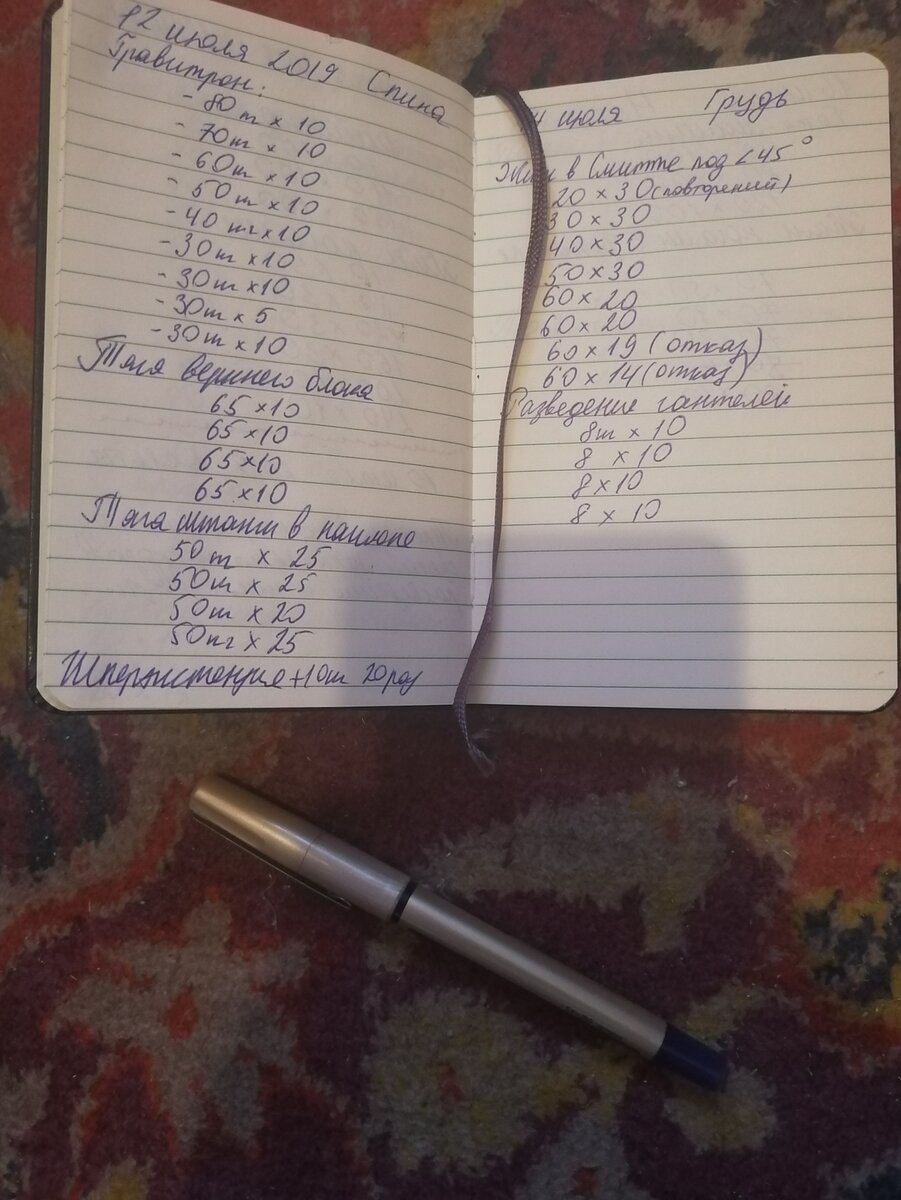 12 июля 2019 Спина
Гравитрон:
- 80 кг x 10
- 70кг x 10
- 60кг x 10
- 50кг x 10
- 40 кг x 10
- 30кг x 10
- 30кг x 10
- 30кг x 5
- 30кг x 10
Тяга верхнего блока
65 x 10
65 x 10
65 x 10
65 x 10
Тяга штанги в наклоне
50кг x 25
50кг x 25
50кг x 20
50кг x 25
Гиперэкстензия +10кг 20 раз
14 июля Грудь
Жим в Смитте под <45°
20 x 30 (повторений)
30 x 30
40 x 30
50 x 30
60 x 20
60 x 20
60 x 19 (отказ)
60 x 14 (отказ)
Разведение гантелей
8кг x 10
8 x 10
8 x 10
8 x 10